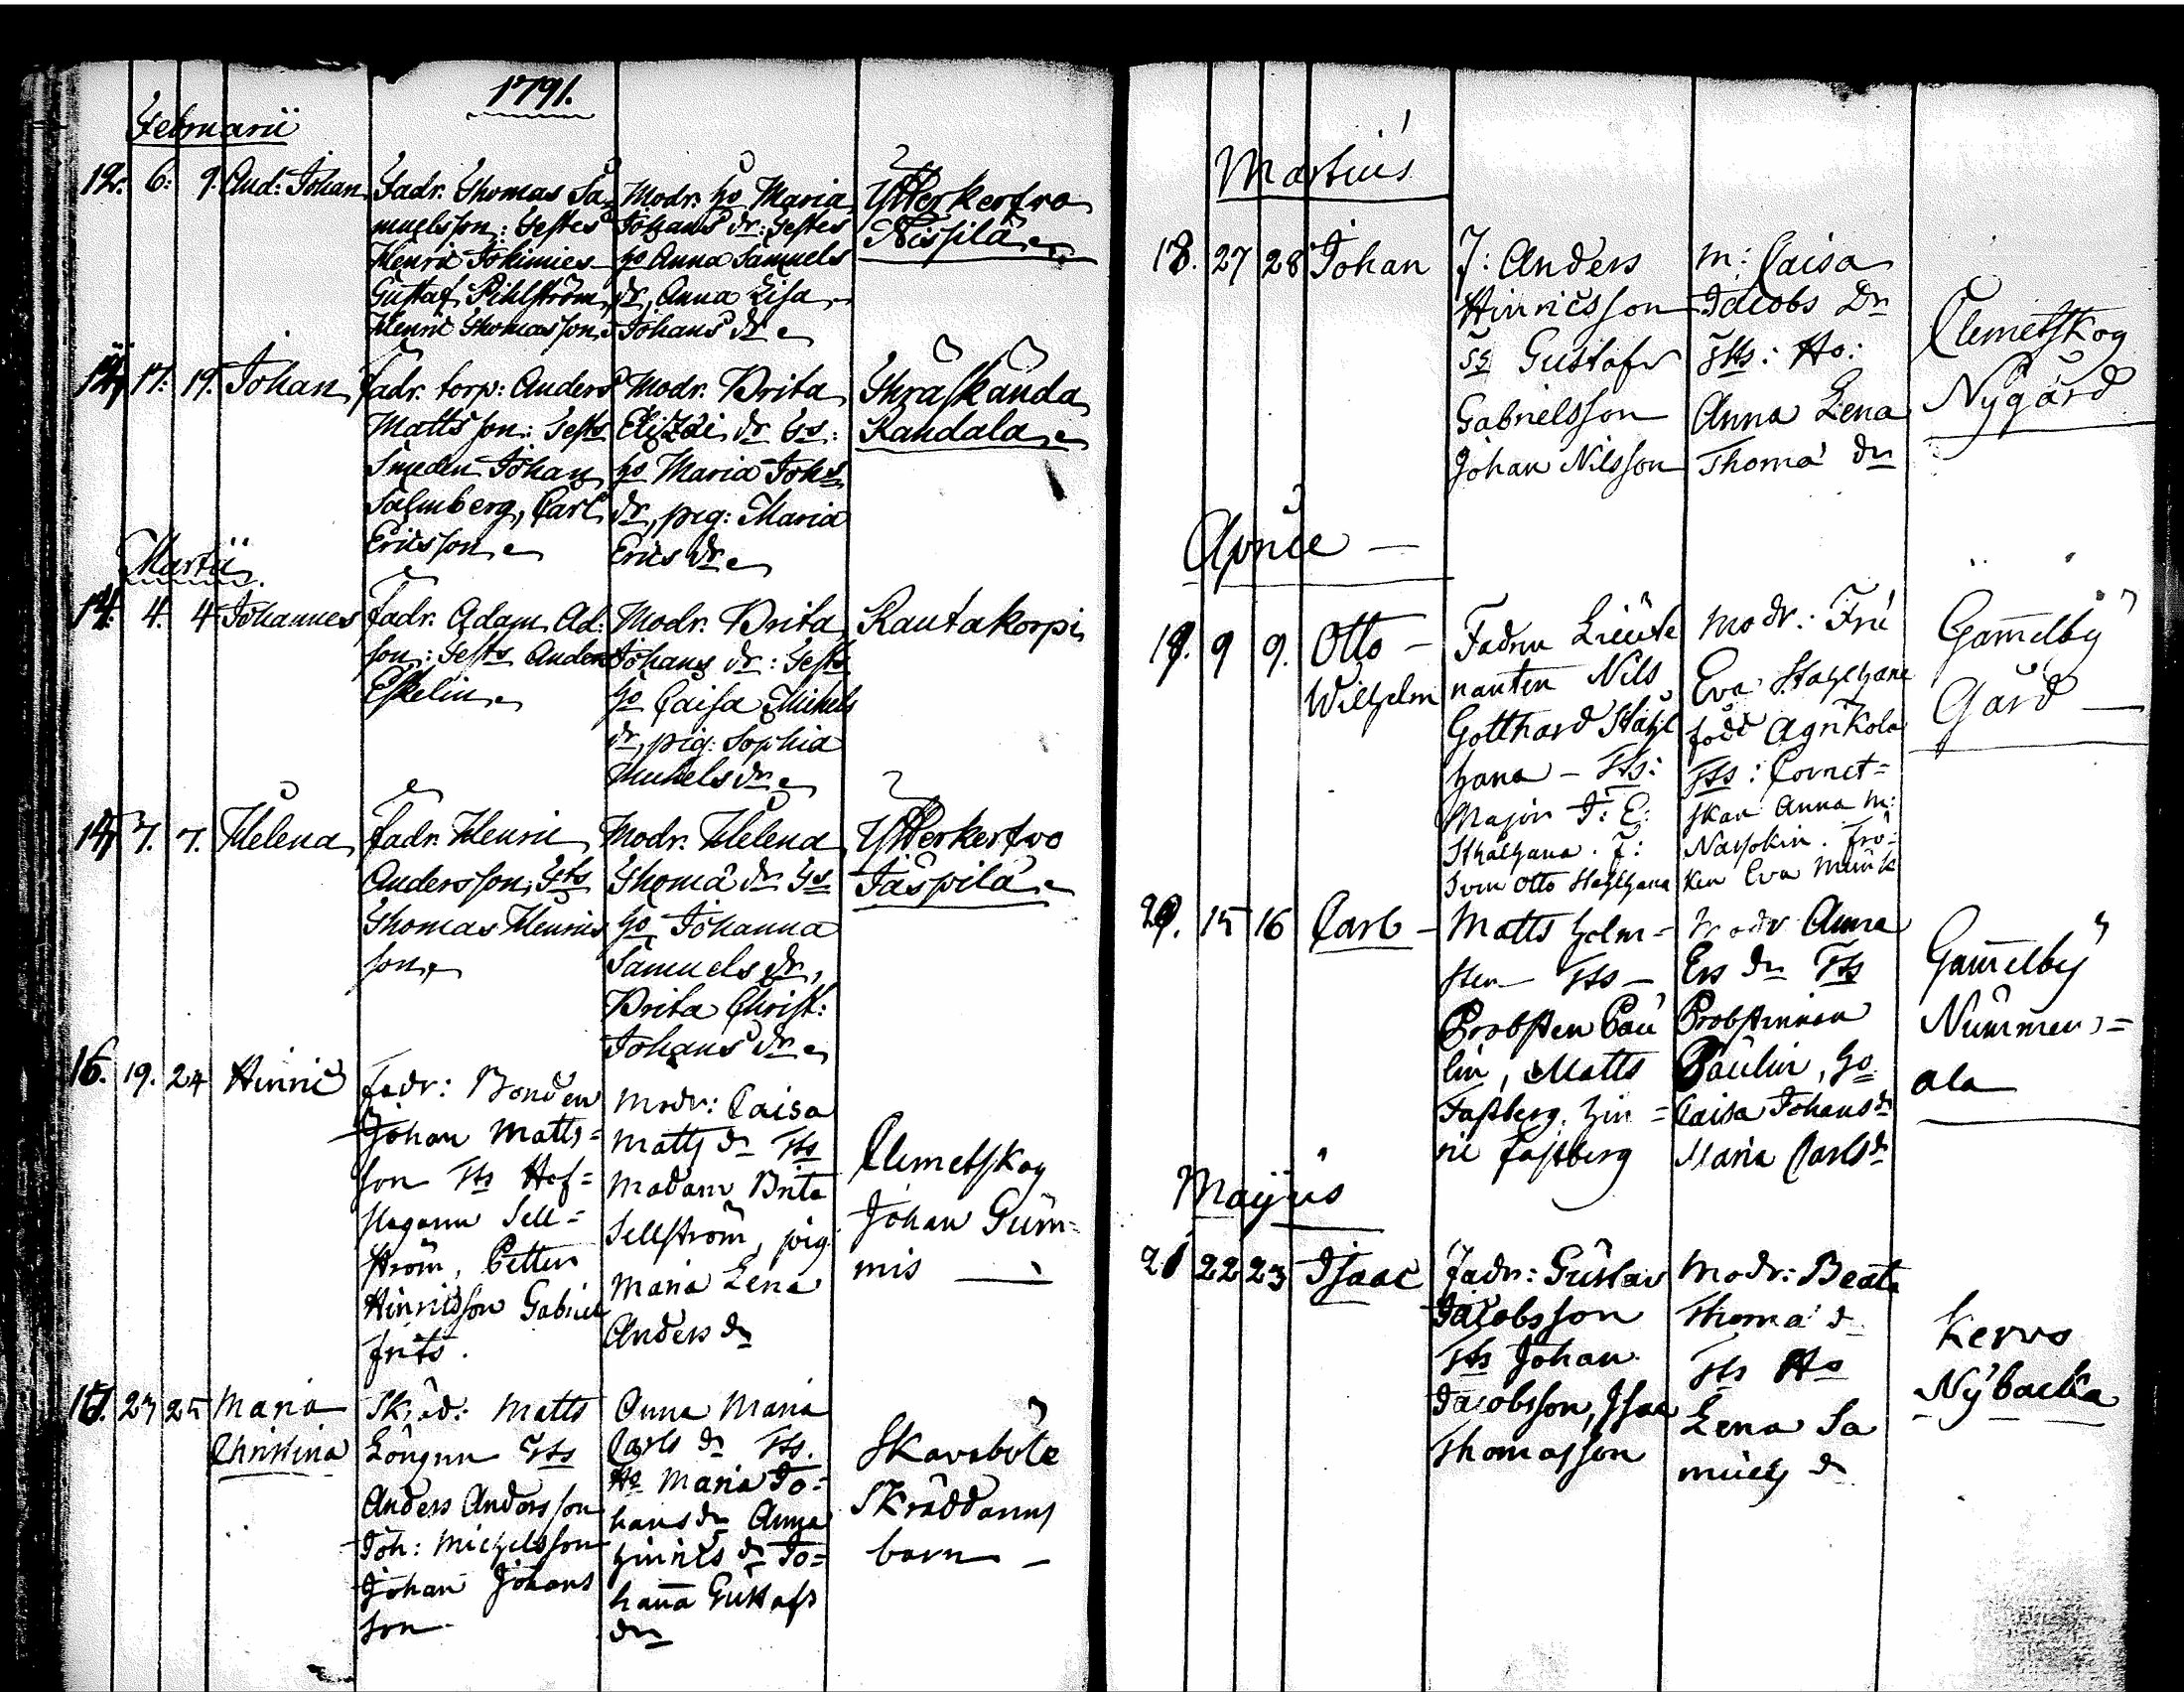 1791.
Februarii
12. 6: 9. And: Johan
Fadr. Thomas Sa-
muelsson: Testes
Henric Johimies
Gustaf Pihlström,
Henric Thomasson
Modr. ho Maria
Johans dr: Testes
ho Anna Samuels
dr, Anna Lisa
Johans dr
Ytterkerfvo
Nissilä
17: 19. Johan
fadr. torp: Anders
Matts son: Tests
Smeden Johan
Salmberg, Carl
Ericsson
Modr. Brita
dr Ts:
ho Maria Johs
dr, pig: Maria
Erics dr
Thräskända
Kandala
Martii
14. 4. 4. Johannes
fadr. Adam Ad:
son: Tests Anders
Eskelin
Modr. Brita
Johans dr: Tests
ho Caisa Michels
dr, pig: Sophia
Michels dr
Rautakorpi
7. 7. Helena
fadr. Henric
Andersson, Tsts
Thomas Henrics
son
Modr. Helena
Thomæ dr Ts
ho Johanna
Samuels dr,
Brita Christ:
Johans dr
Ytterkerfvo
Jäspilä
16. 19. 24 Hinric
Fadr: Bonden
Johan Matts=
son Tts Hof=
slagaren Sell=
ström, Petter
Hinricsson Gabriel
frits.
Modr: Caisa
Matts dr Tts
Madam Brita
Sellström, pig
Maria Lena
Anders dr
Clemetskog
Johan Gum=
mis
17. 23 25 Maria
Christina
Skräd: Matts
Löngrn Tts
Anders Andersson
Joh: Michelsson
Johan Johans
son
Anna Maria
Carls dr Tts.
Ho Maria Jo=
hans dr Anna
Hinrics dr Jo=
hana Gustafs
dr
Skavaböle
Skräddarens
barn
Martius
18. 27 28 Johan
F: Anders
Hinricsson
Gustaf
Gabrielsson
Johan Nilsson
M: Caisa
Jacobs Dr
Tts: Ho:
Anna Lena
Thomæ dr
Clemetskog
Nygård
Aprile
19. 9 9. Otto
Wilhelm
Fadren Lieute
nanten Nils
Gotthard Stahl
hana - Tts:
Major J: E:
Sthålhana. F:
Sven Otto Stahlhana
Modr: Fru
Eva Stahlhane
född Agrikola
Tts: Cornet=
skan Anna M:
Nassokin. Frö=
ken Eva Munck
Gamelby
Gård
20. 15 16 Carl
Matts Holm=
sten Tts
Probsten Pau
lin, Matts
Fastberg. Hin=
ric fastberg
Modr Anna
Ers dr Tts
Probstinnan
Paulin, Ho
Caisa Johans dr
Maria Carls dr
Gamelby
Nummen=
ala
Majus
21 22 23 Isaac
Fadr: Gustav
Jacobsson
Tts Johan
Jacobsson, Isac
Thomasson
Modr: Beata
Thomæ d
Tts Ho
Lena Sa
muels d
Kervo
Nybacka